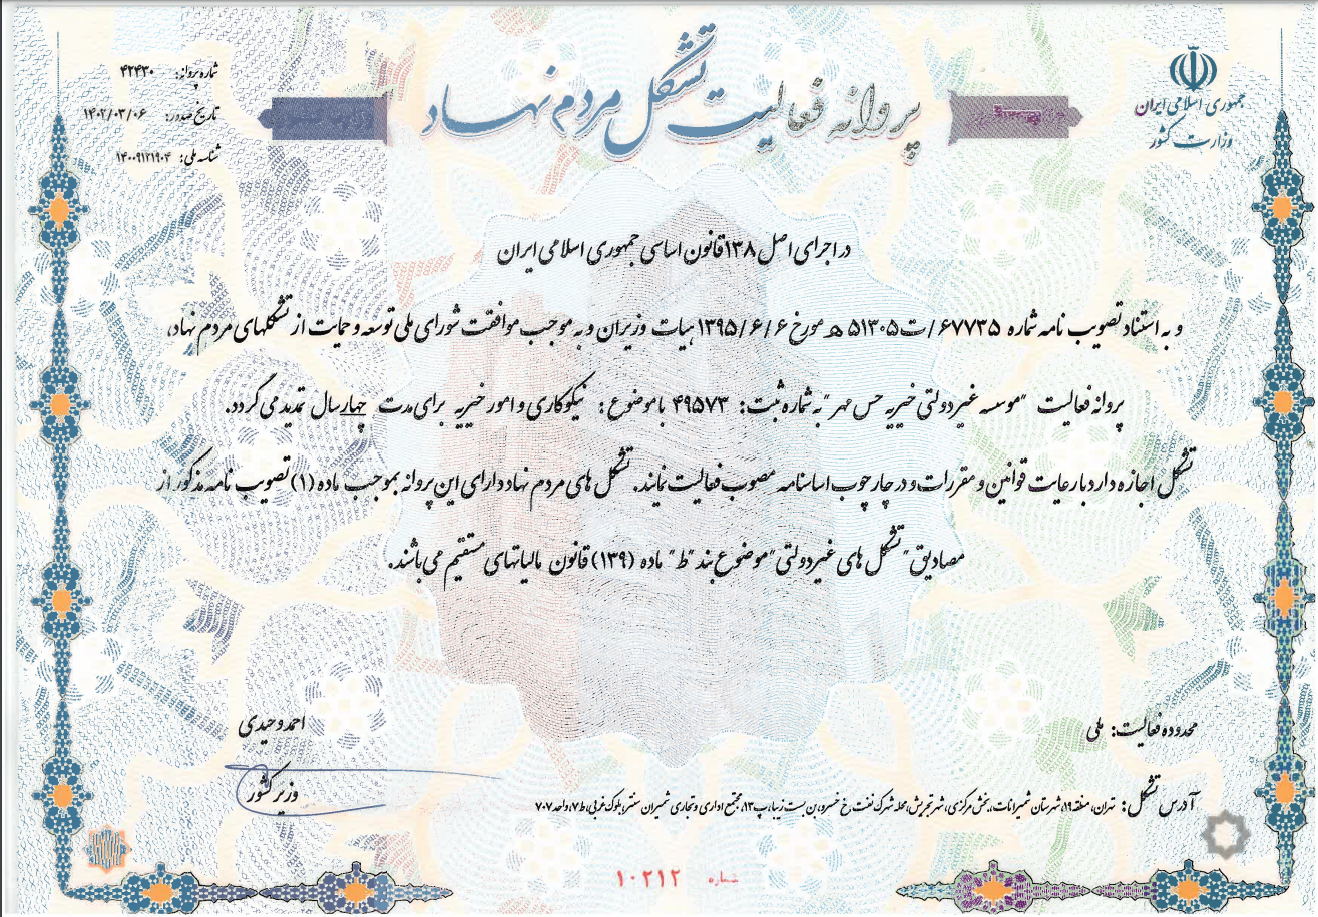 جمهوری اسلامی ایران
وزارت کشور
پروانه فعالیت تشکل مردم نهاد
شماره پروانه: ۴۲۴۳۰
تاریخ صدور: ۱۴۰۲/۰۳/۰۶
شناسه ملی: ۱۴۰۰۹۱۲۱۹۰۴
در اجرای اصل ۱۳۸ قانون اساسی جمهوری اسلامی ایران
و به استناد تصویب نامه شماره ۶۷۷۳۵/ت۵۱۳۰۵ ه مورخ ۱۳۹۵/۶/۶ هیات وزیران و به موجب موافقت شورای ملی توسعه و حمایت از تشکلهای مردم نهاد،
پروانه فعالیت "موسسه غیردولتی خیریه حس مهر" به شماره ثبت: ۴۹۵۷۳ با موضوع: نیکوکاری و امور خیریه برای مدت چهار سال تمدید می گردد.
تشکل اجازه دارد با رعایت قوانین و مقررات و در چارچوب اساسنامه مصوب فعالیت نماید. تشکل های مردم نهاد دارای این پروانه بموجب ماده (۱) تصویب نامه مذکور از
مصادیق "تشکل های غیردولتی" موضوع بند "ط" ماده (۱۳۹) قانون مالیاتهای مستقیم می باشند.
محدوده فعالیت: ملی
احمد وحیدی
وزیر کشور
آدرس تشکل: تهران، منطقه ۱۹، شهرستان شمیرانات، بخش مرکزی، شهر تجریش، محله شهرک نفت، خ خسرو، بن بست زیبا، پ ۱۳، مجتمع اداری و تجاری شمیران سنتر، بلوک غربی، ط ۷، واحد ۷۰۷
شماره ۱۰۲۱۲